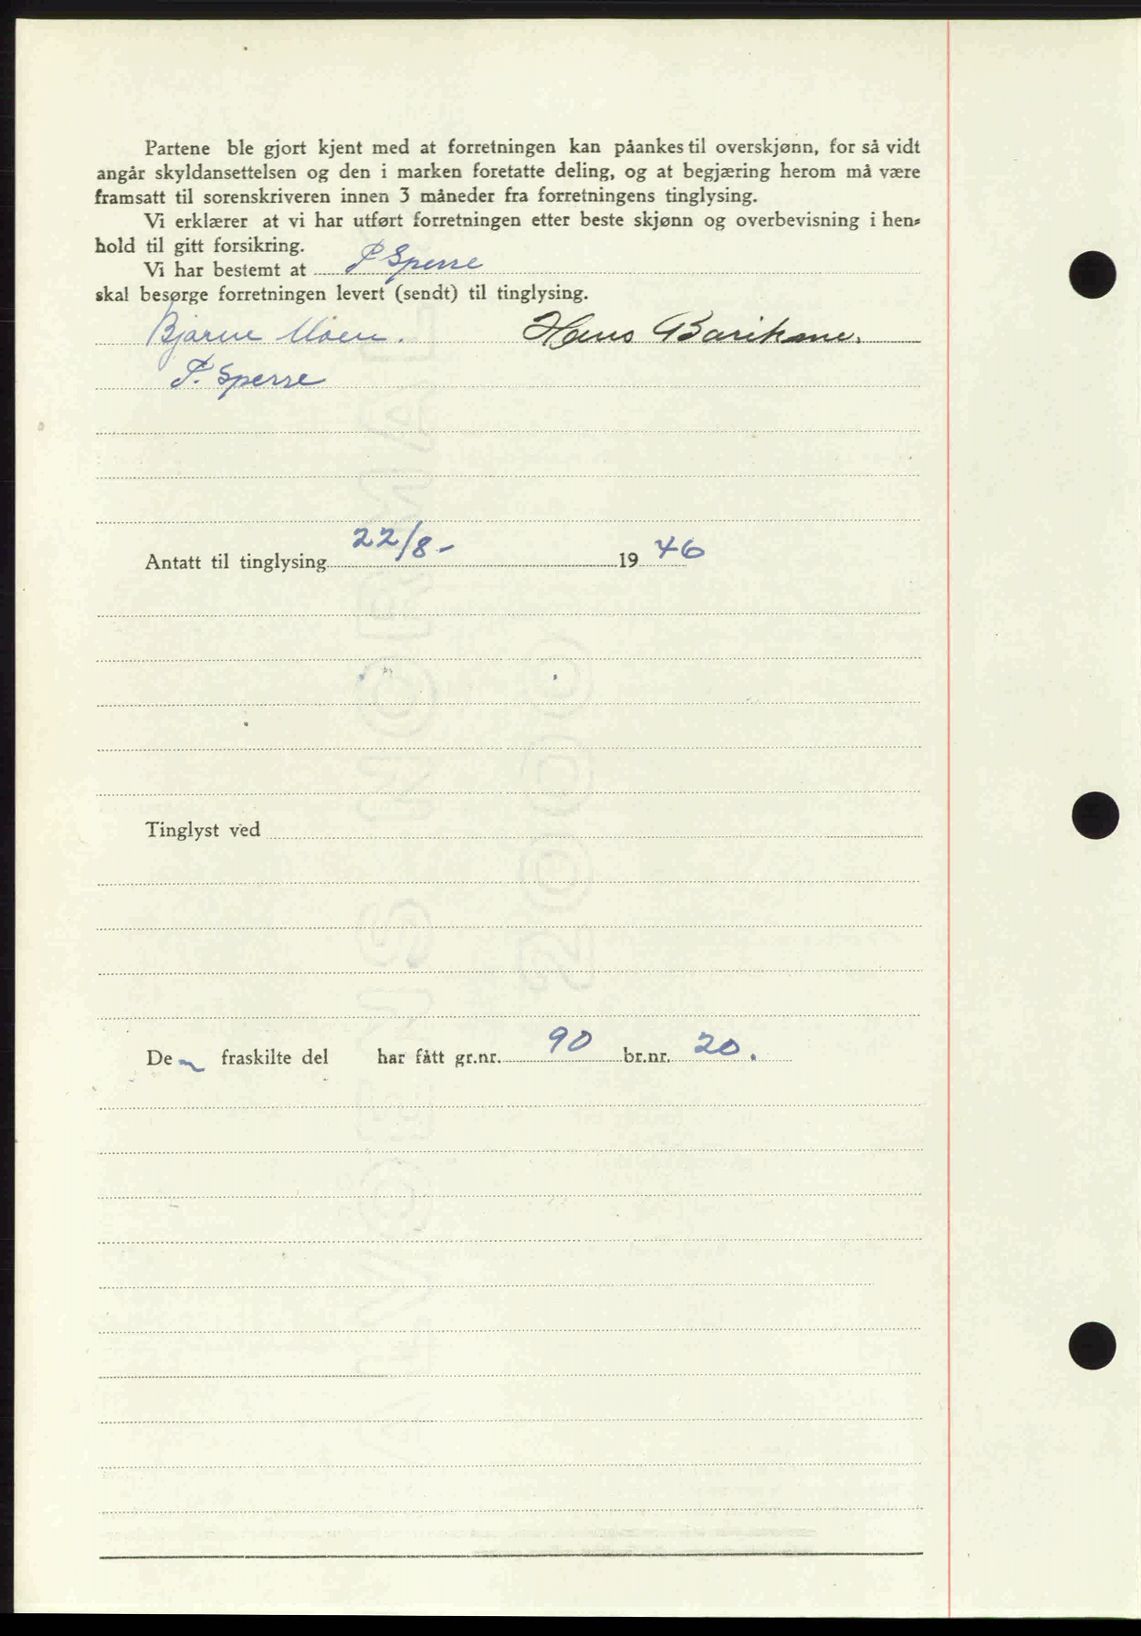 Partene ble gjort kjent med at forretningen kan påankes til overskjønn, for så vidt
angår skyldansettelsen og den i marken foretatte deling, og at begjæring herom må være
framsatt til sorenskriveren innen 3 måneder fra forretningens tinglysing.
Vi erklærer at vi har utført forretningen etter beste skjønn og overbevisning i hen=
hold til gitt forsikring.
Vi har bestemt at P Sperre
skal besørge forretningen levert (sendt) til tinglysing.
Bjarne Moen. Hans
P. Sperre
Antatt til tinglysing 22/8- 19 46
Tinglyst ved
Den fraskilte del har fått gr.nr. 90 br.nr. 20.